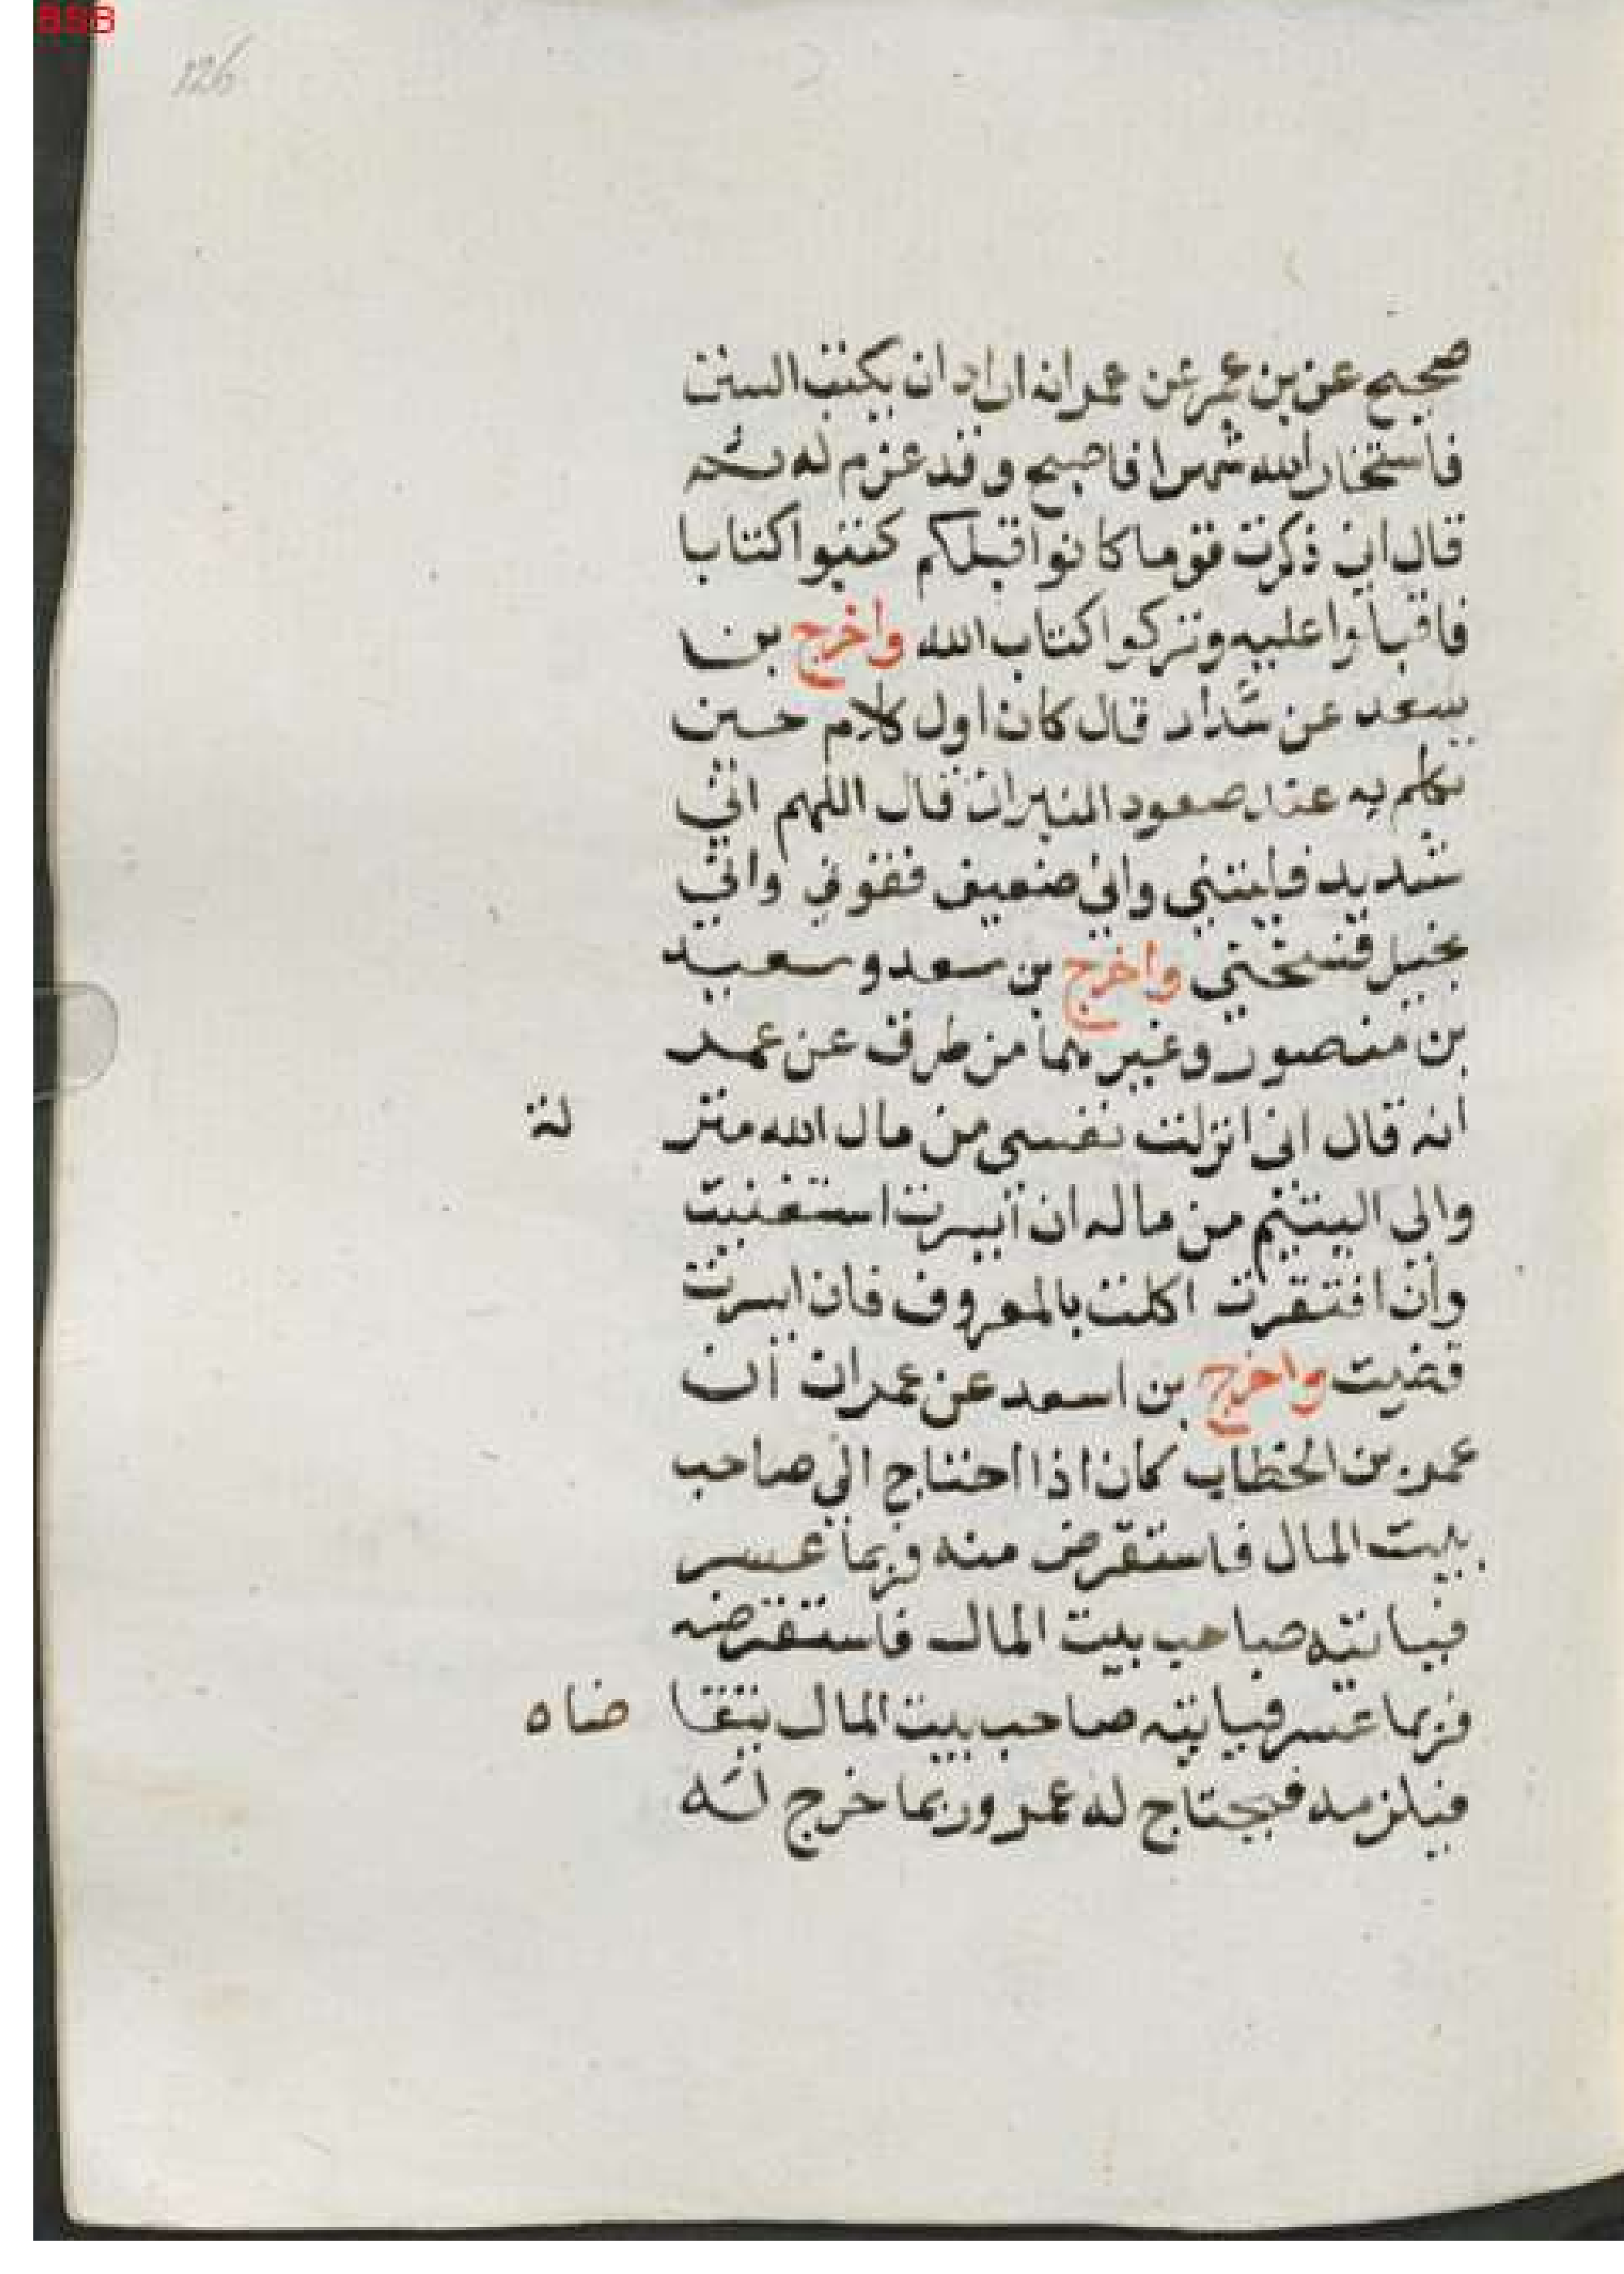 BSB
126
صحيح عن بن عمر عن عمر انه اراد ان يكتب السنن
فاستخار الله شهرا فاصبح وقد عزم له ثم
قال اني ذكرت قوما كانوا قبلكم كتبوا كتابا
فاقبلوا عليه وتركوا كتاب الله واخرج بن
سعد عن شداد قال كان اول كلام حين
تكلم به عند صعود المنبر ان قال اللهم اني
شديد فلينني واني ضعيف فقوني واني
بخيل فسخني واخرج بن سعد وسعيد
بن منصور وغيرهما من طرق عن عمر
انه قال انى انزلت نفسى من مال الله منز لة
والى اليتيم من ماله ان ايسرت استغنيت
وان افتقرت اكلت بالمعروف فان ايسرت
قضيت واخرج بن اسعد عن عمران ان
عمر بن الخطاب كان اذا احتاج الي صاحب
بيت المال فاستقرض منه فربما عسر
فياتيه صاحب بيت المال فاستقرضه
فربما عسر فياتيه صاحب بيت المال يتقا ضاه
فيلزمه فيحتاج له عمر وربما خرج له